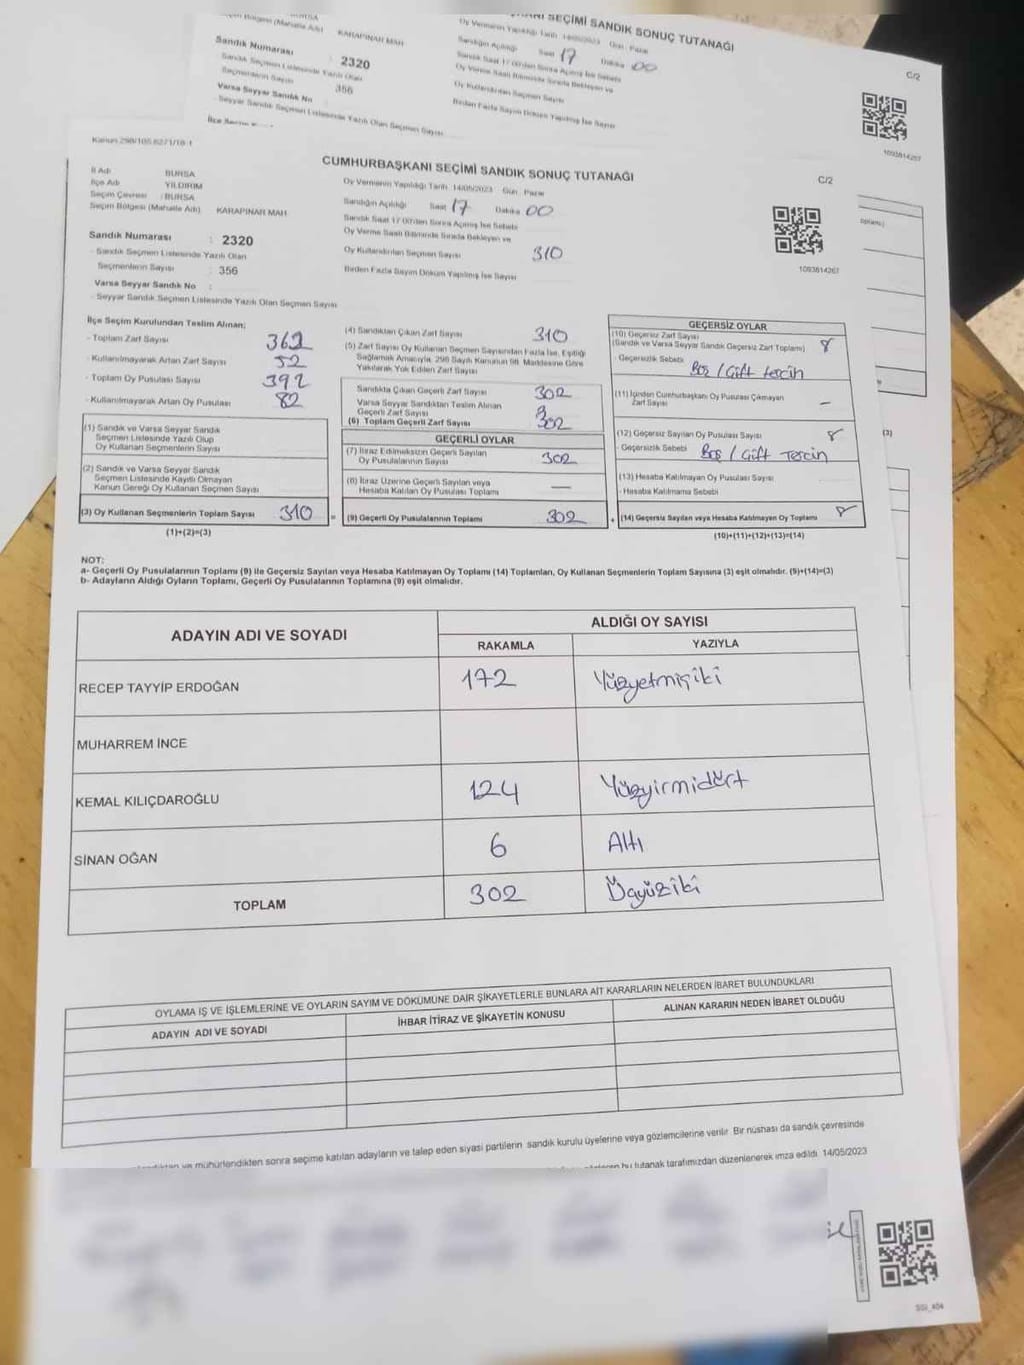 SEÇİMİ SANDIK SONUÇ TUTANAĞI
C/2
KARAPINAR MAH
Sandık Numarası : 2320
356
Varsa Seyyar Sandık No
Saat 17 Dakika 00
1093814267
CUMHURBAŞKANI SEÇİMİ SANDIK SONUÇ TUTANAĞI
C/2
İl Adı BURSA
İlçe Adı YILDIRIM
Seçim Çevresi : BURSA
Seçim Bölgesi (Mahalle Adı) KARAPINAR MAH
Oy Vermenin Yapıldığı Tarih 14/05/2023 Gün Pazar
Sandığın Açıldığı Saat 17 Dakika 00
Sandık Saat 17 00'den Sonra Açılmış İse Sebebi
Oy Verme Saati Bitiminde Sırada Bekleyen ve
Oy Kullandırılan Seçmen Sayısı 310
Birden Fazla Sayım Döküm Yapılmış İse Sayısı
1093814267
Sandık Numarası : 2320
- Sandık Seçmen Listesinde Yazılı Olan
Seçmenlerin Sayısı : 356
Varsa Seyyar Sandık No :
- Seyyar Sandık Seçmen Listesinde Yazılı Olan Seçmen Sayısı
İlçe Seçim Kurulundan Teslim Alınan;
- Toplam Zarf Sayısı 362
- Kullanılmayarak Artan Zarf Sayısı 52
- Toplam Oy Pusulası Sayısı 392
- Kullanılmayarak Artan Oy Pusulası 82
(1) Sandık ve Varsa Seyyar Sandık
Seçmen Listesinde Yazılı Olup
Oy Kullanan Seçmenlerin Sayısı
(2) Sandık ve Varsa Seyyar Sandık
Seçmen Listesinde Kayıtlı Olmayan
Kanun Gereği Oy Kullanan Seçmen Sayısı
(3) Oy Kullanan Seçmenlerin Toplam Sayısı 310
(1)+(2)=(3)
(4) Sandıktan Çıkan Zarf Sayısı 310
(5) Zarf Sayısı Oy Kullanan Seçmen Sayısından Fazla İse, Eşitliği
Sağlamak Amacıyla, 298 Sayılı Kanunun 98. Maddesine Göre
Yakılarak Yok Edilen Zarf Sayısı
Sandıkta Çıkan Geçerli Zarf Sayısı 302
Varsa Seyyar Sandıktan Teslim Alınan
Geçerli Zarf Sayısı
(6) Toplam Geçerli Zarf Sayısı 302
GEÇERLİ OYLAR
(7) İtiraz Edilmeksizin Geçerli Sayılan
Oy Pusulalarının Sayısı 302
(8) İtiraz Üzerine Geçerli Sayılan veya
Hesaba Katılan Oy Pusulası Toplamı —
= (9) Geçerli Oy Pusulalarının Toplamı 302
GEÇERSİZ OYLAR
(10) Geçersiz Zarf Sayısı
(Sandık ve Varsa Seyyar Sandık Geçersiz Zarf Toplamı) 8
- Geçersizlik Sebebi
Boş / Çift tercih
(11) İçinden Cumhurbaşkanı Oy Pusulası Çıkmayan
Zarf Sayısı —
(12) Geçersiz Sayılan Oy Pusulası Sayısı 8
- Geçersizlik Sebebi Boş / Çift Tercih
(13) Hesaba Katılmayan Oy Pusulası Sayısı
- Hesaba Katılmama Sebebi
+ (14) Geçersiz Sayılan veya Hesaba Katılmayan Oy Toplamı 8
(10)+(11)+(12)+(13)=(14)
NOT:
a- Geçerli Oy Pusulalarının Toplamı (9) ile Geçersiz Sayılan veya Hesaba Katılmayan Oy Toplamı (14) Toplamları, Oy Kullanan Seçmenlerin Toplam Sayısına (3) eşit olmalıdır. (9)+(14)=(3)
b- Adayların Aldığı Oyların Toplamı, Geçerli Oy Pusulalarının Toplamına (9) eşit olmalıdır.
ADAYIN ADI VE SOYADI
ALDIĞI OY SAYISI
RAKAMLA YAZIYLA
RECEP TAYYİP ERDOĞAN 172 Yüzyetmişiki
MUHARREM İNCE
KEMAL KILIÇDAROĞLU 124 Yüzyirmidört
SİNAN OĞAN 6 Altı
TOPLAM 302 Üçyüziki
OYLAMA İŞ VE İŞLEMLERİNE VE OYLARIN SAYIM VE DÖKÜMÜNE DAİR ŞİKAYETLERLE BUNLARA AİT KARARLARIN NELERDEN İBARET BULUNDUKLARI
ADAYIN ADI VE SOYADI İHBAR İTİRAZ VE ŞİKAYETİN KONUSU ALINAN KARARIN NEDEN İBARET OLDUĞU
ve mühürlendikten sonra seçime katılan adayların ve talep eden siyasi partilerin sandık kurulu üyelerine veya gözlemcilerine verilir. Bir nüshası da sandık çevresinde
bu tutanak tarafımızdan düzenlenerek imza edildi. 14/05/2023